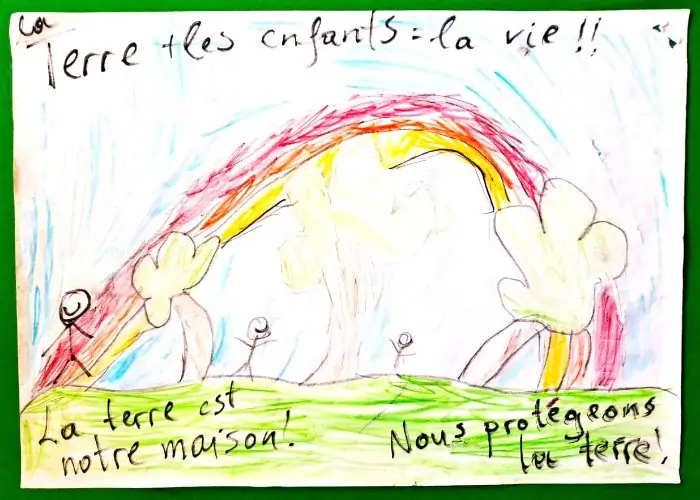 La
Terre + les enfants = la vie !!
La terre est
notre maison!
Nous protégeons
la terre!